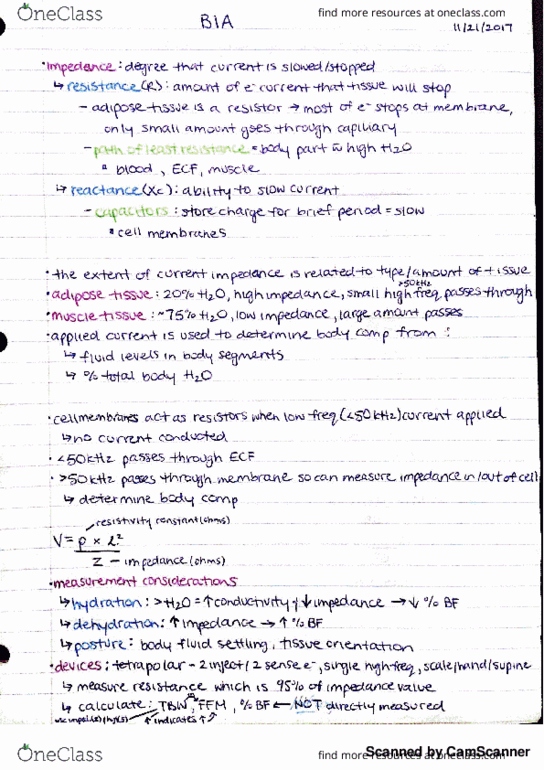 OneClass
find more resources at oneclass.com
BIA
11/21/2017
• impedance: degree that current is slowed/stopped
↳ resistance (R): amount of e⁻ current that tissue will stop
- adipose tissue is a resistor → most of e⁻ stops at membrane,
only small amount goes through capillary
- path of least resistance = body part w̄ high H₂O
• blood, ECF, muscle
↳ reactance (Xc): ability to slow current
- capacitors: store charge for brief period = slow
• cell membranes
• the extent of current impedance is related to type/amount of tissue
>50kHz
• adipose tissue: 20% H₂O, high impedance, small high freq passes through
• muscle tissue: ~75% H₂O, low impedance, large amount passes
• applied current is used to determine body comp from:
↳ fluid levels in body segments
↳ % total body H₂O
• cell membranes act as resistors when low freq (<50kHz) current applied
↳ no current conducted
• <50kHz passes through ECF
• >50kHz passes through membrane so can measure impedance in/out of cell
↳ determine body comp
resistivity constant (ohms)
V = ρ × L²
Z - impedance (ohms)
• measurement considerations
↳ hydration: >H₂O = ↑ conductivity & ↓ impedance → ↓ % BF
↳ dehydration: ↑ impedance → ↑ % BF
↳ posture: body fluid settling, tissue orientation
• devices: tetrapolar - 2 inject/2 sense e⁻, single high freq, scale/hand/supine
↳ measure resistance which is 95% of impedance value
↳ calculate: TBW, FFM, % BF ← NOT directly measured
↑ indicates ↑
OneClass
find more resources at oneclass.com
Scanned by CamScanner